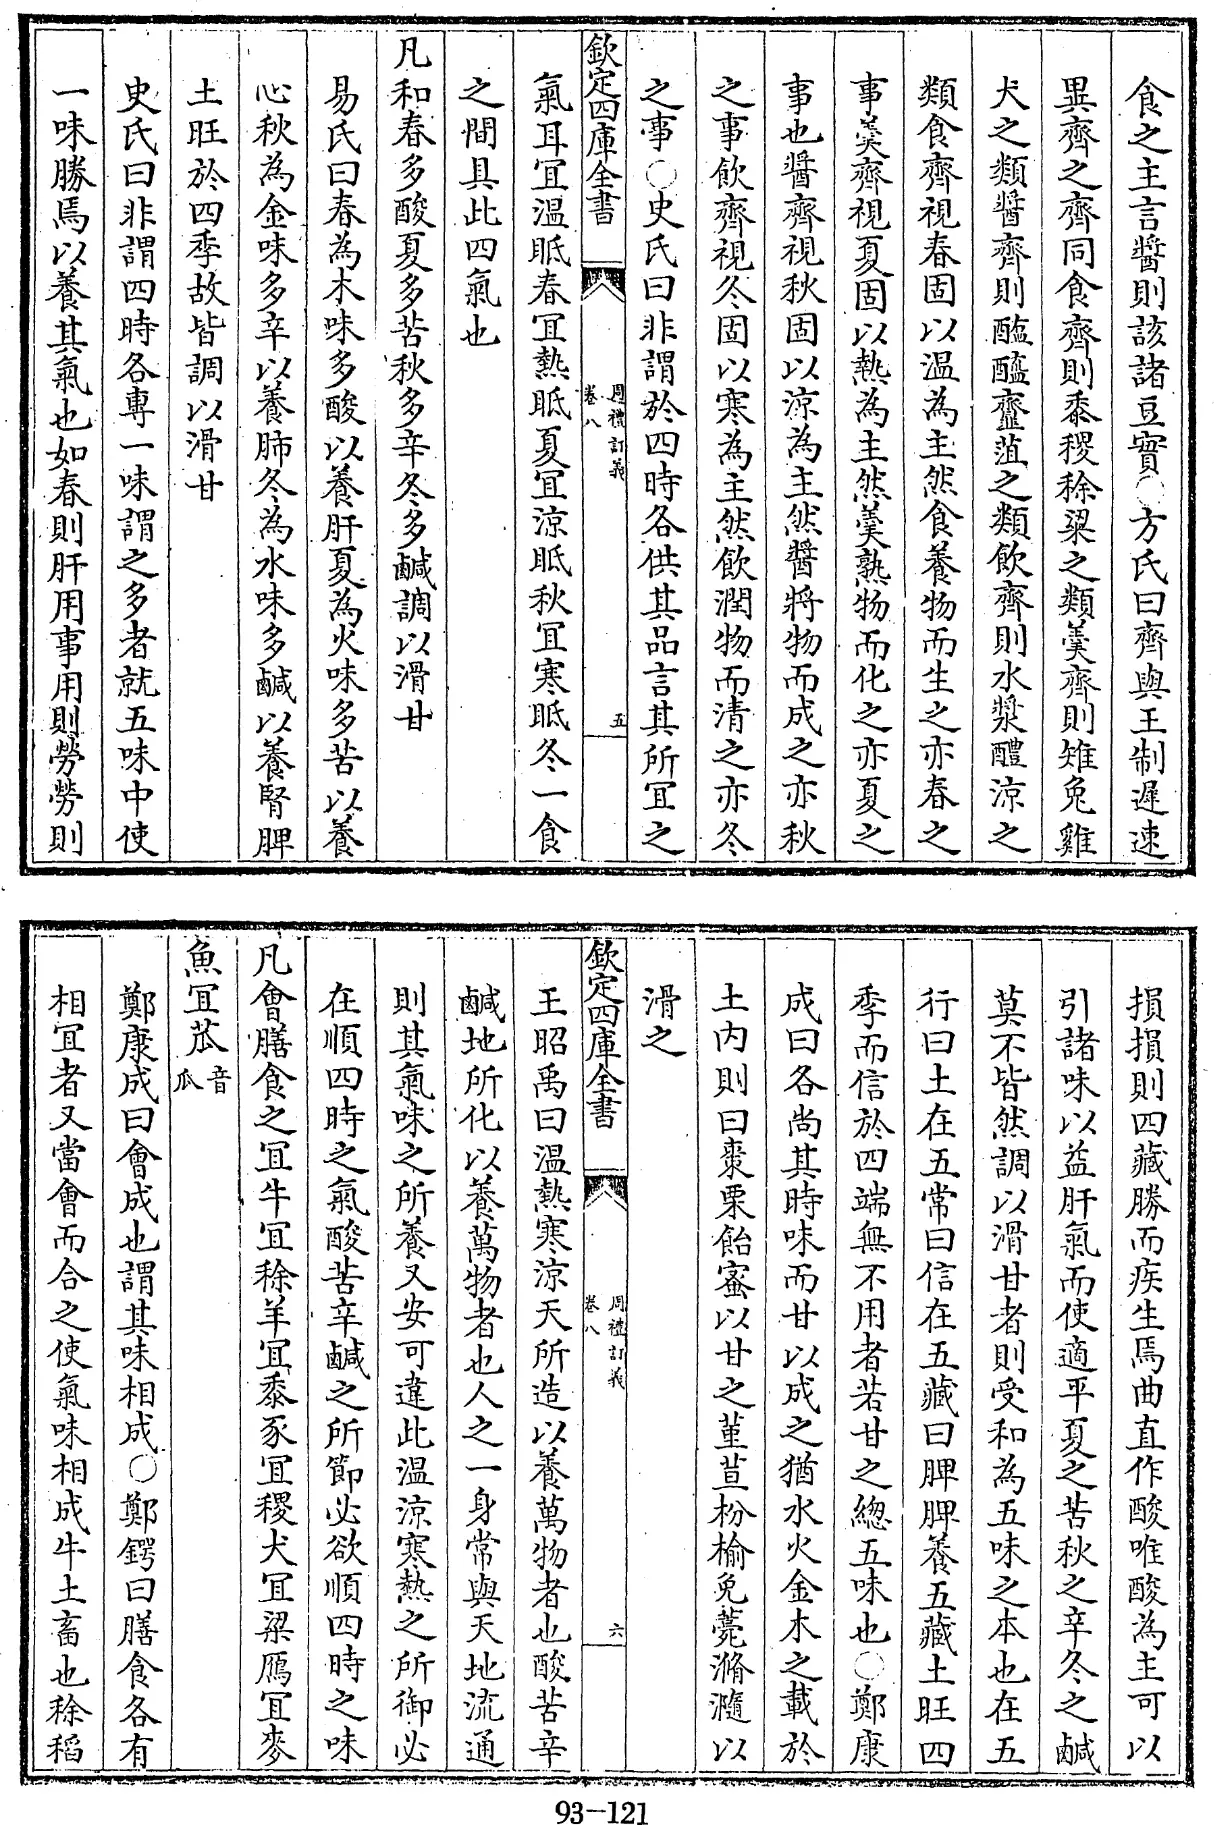 食之主言醬則該諸豆實○方氏曰齊與王制遲速
異齊之齊同食齊則黍稷稌粱之類羹齊則雉兔雞
犬之類醬齊則醯醢齏菹之類飲齊則水漿醴涼之
類食齊視春固以温為主然食養物而生之亦春之
事羹齊視夏固以熱為主然羹熟物而化之亦夏之
事也醬齊視秋固以涼為主然醬將物而成之亦秋
之事飲齊視冬固以寒為主然飲潤物而清之亦冬
之事○史氏曰非謂於四時各供其品言其所宜之
欽定四庫全書
周禮訂義
卷八
五
氣耳宜温眡春宜熱眡夏宜涼眡秋宜寒眡冬一食
之間具此四氣也
凡和春多酸夏多苦秋多辛冬多鹹調以滑甘
易氏曰春為木味多酸以養肝夏為火味多苦以養
心秋為金味多辛以養肺冬為水味多鹹以養腎脾
土旺於四季故皆調以滑甘
史氏曰非謂四時各專一味謂之多者就五味中使
一味勝焉以養其氣也如春則肝用事用則勞勞則
損損則四藏勝而疾生焉曲直作酸唯酸為主可以
引諸味以益肝氣而使適平夏之苦秋之辛冬之鹹
莫不皆然調以滑甘者則受和為五味之本也在五
行曰土在五常曰信在五藏曰脾脾養五藏土旺四
季而信於四端無不用者若甘之緫五味也○鄭康
成曰各尚其時味而甘以成之猶水火金木之載於
土内則曰棗栗飴蜜以甘之堇荁枌榆免薧滫瀡以
滑之
欽定四庫全書
周禮訂義
卷八
六
王昭禹曰温熱寒涼天所造以養萬物者也酸苦辛
鹹地所化以養萬物者也人之一身常與天地流通
則其氣味之所養又安可違此温涼寒熱之所御必
在順四時之氣酸苦辛鹹之所節必欲順四時之味
凡會膳食之宜牛宜稌羊宜黍豕宜稷犬宜粱鴈宜麥
魚宜苽音瓜
鄭康成曰會成也謂其味相成○鄭鍔曰膳食各有
相宜者又當會而合之使氣味相成牛土畜也稌稻
93-121